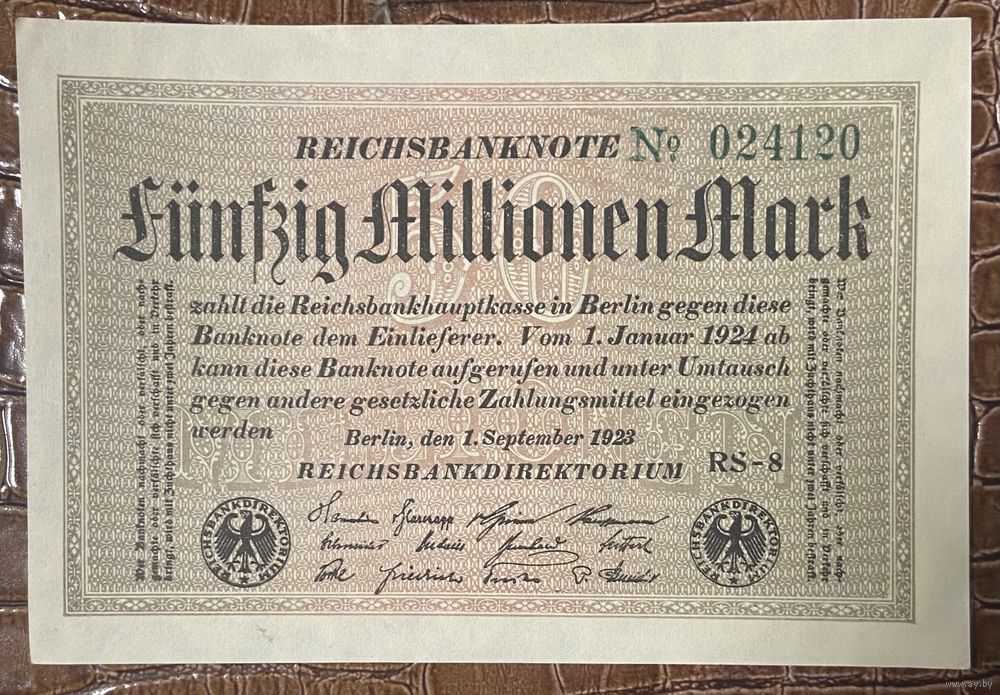 REICHSBANKNOTE № 024120
50
Fünfzig Millionen Mark
zahlt die Reichsbankhauptkasse in Berlin gegen diese
Banknote dem Einlieferer. Vom 1. Januar 1924 ab
kann diese Banknote aufgerufen und unter Umtausch
gegen andere gesetzliche Zahlungsmittel eingezogen
werden
Berlin, den 1. September 1923
REICHSBANKDIREKTORIUM
RS-8
Wer Banknoten nachmacht oder verfälscht oder nach-
gemachte oder verfälschte sich verschafft und in Verkehr
bringt, wird mit Zuchthaus nicht unter zwei Jahren bestraft.
Wer Banknoten nachmacht oder verfälscht oder nach-
gemachte oder verfälschte sich verschafft und in Verkehr
bringt, wird mit Zuchthaus nicht unter zwei Jahren bestraft.
REICHSBANKDIREKTORIUM
REICHSBANKDIREKTORIUM
MILLIONEN
www.ay.by